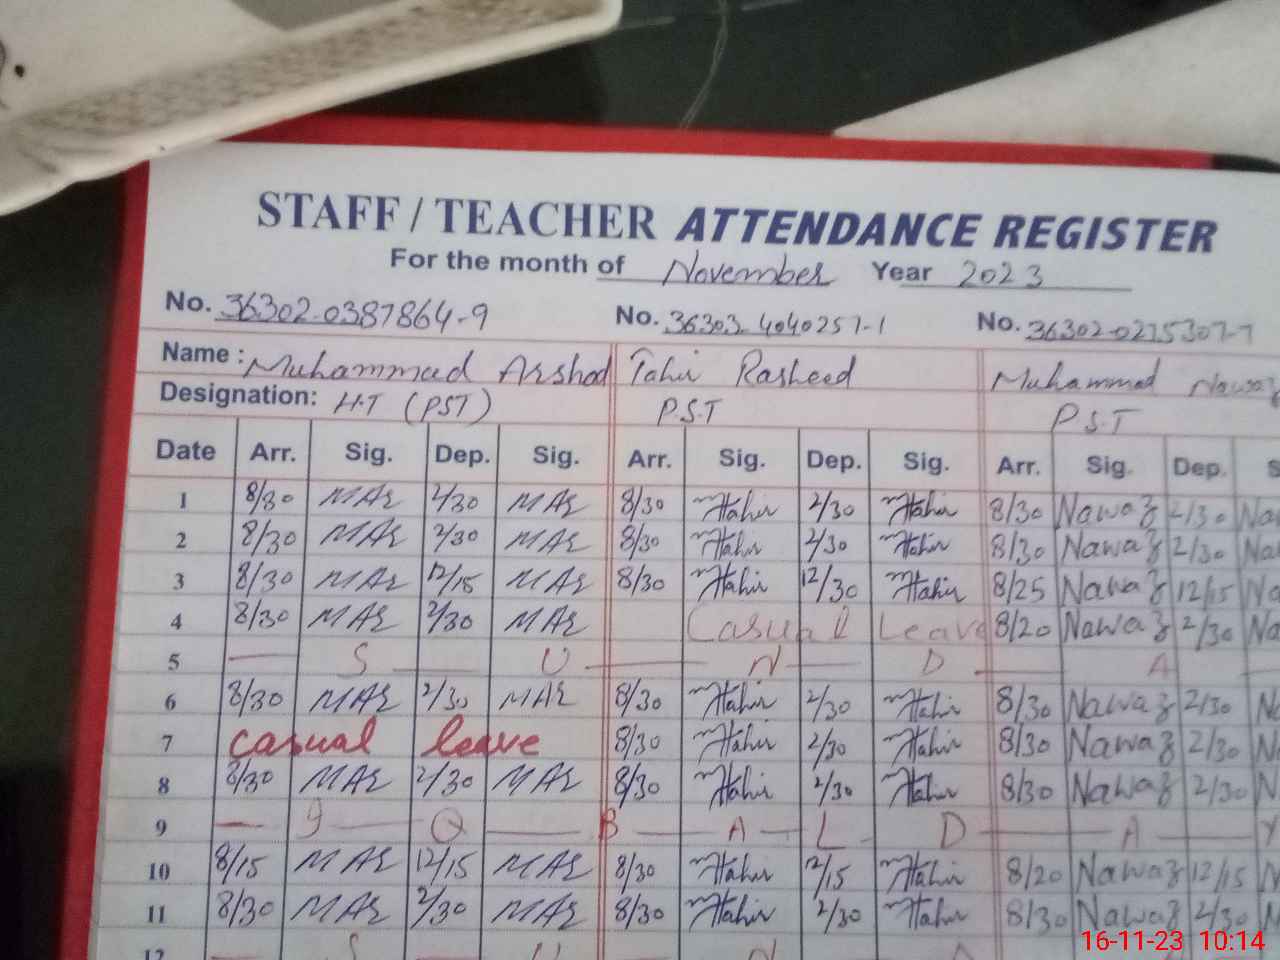 STAFF / TEACHER ATTENDANCE REGISTER
For the month of November Year 2023
No. 36302-0387864-9 No. 36303-4040257-1 No. 36302-0275307-7
Name : Muhammad Arshad Tahir Rasheed Muhammad Nawaz
Designation: H.T (PST) P.S.T P.S.T
Date Arr. Sig. Dep. Sig. Arr. Sig. Dep. Sig. Arr. Sig. Dep. S
1 8/30 MAR 2/30 MAR 8/30 Tahir 2/30 Tahir 8/30 Nawaz 2/30 Na
2 8/30 MAR 2/30 MAR 8/30 Tahir 2/30 Tahir 8/30 Nawaz 2/30 Na
3 8/30 MAR 12/15 MAR 8/30 Tahir 12/30 Tahir 8/25 Nawaz 12/15 Na
4 8/30 MAR 2/30 MAR Casual Leave 8/20 Nawaz 2/30 Na
5 S U N D A
6 8/30 MAR 2/30 MAR 8/30 Tahir 2/30 Tahir 8/30 Nawaz 2/30 N
7 casual leave 8/30 Tahir 2/30 Tahir 8/30 Nawaz 2/30 N
8 8/30 MAR 2/30 MAR 8/30 Tahir 2/30 Tahir 8/30 Nawaz 2/30 N
9 I Q B A L D A Y
10 8/15 MAR 12/15 MAR 8/30 Tahir 12/15 Tahir 8/20 Nawaz 12/15 N
11 8/30 MAR 2/30 MAR 8/30 Tahir 2/30 Tahir 8/30 Nawaz 2/30 N
12 S U N D
16-11-23 10:14